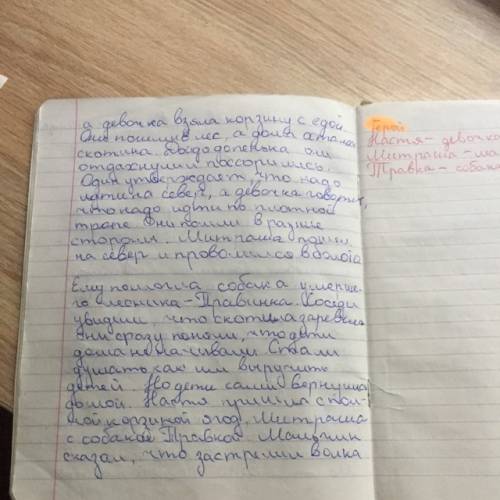 а девочка взяла корзину с едой.
Они пошли в лес, а дома осталась
скотина. Возле пенька они
отдахнули и поссорились.
Один утверждает, что надо
идти на север, а девочка говорит,
что надо идти по плотной
тропе. Они пошли в разные
стороны. Митраша пошёл
на север и провалился в болото
Ему помогла собака умерше-
го лесника - Травинка. Соседи
увидели, что скотина заревела
они сразу поняли, что дети
дома не начивали. Стали
думать, как им выручить
детей. Но дети сами вернулись
домой. Настя пришла с пол-
ной корзиной ягод, Митраша
с собакой Травкой. Мальчик
сказал, что застрелил волка
Герои
Настя - девочка
Митраша - ма
Травка - собака